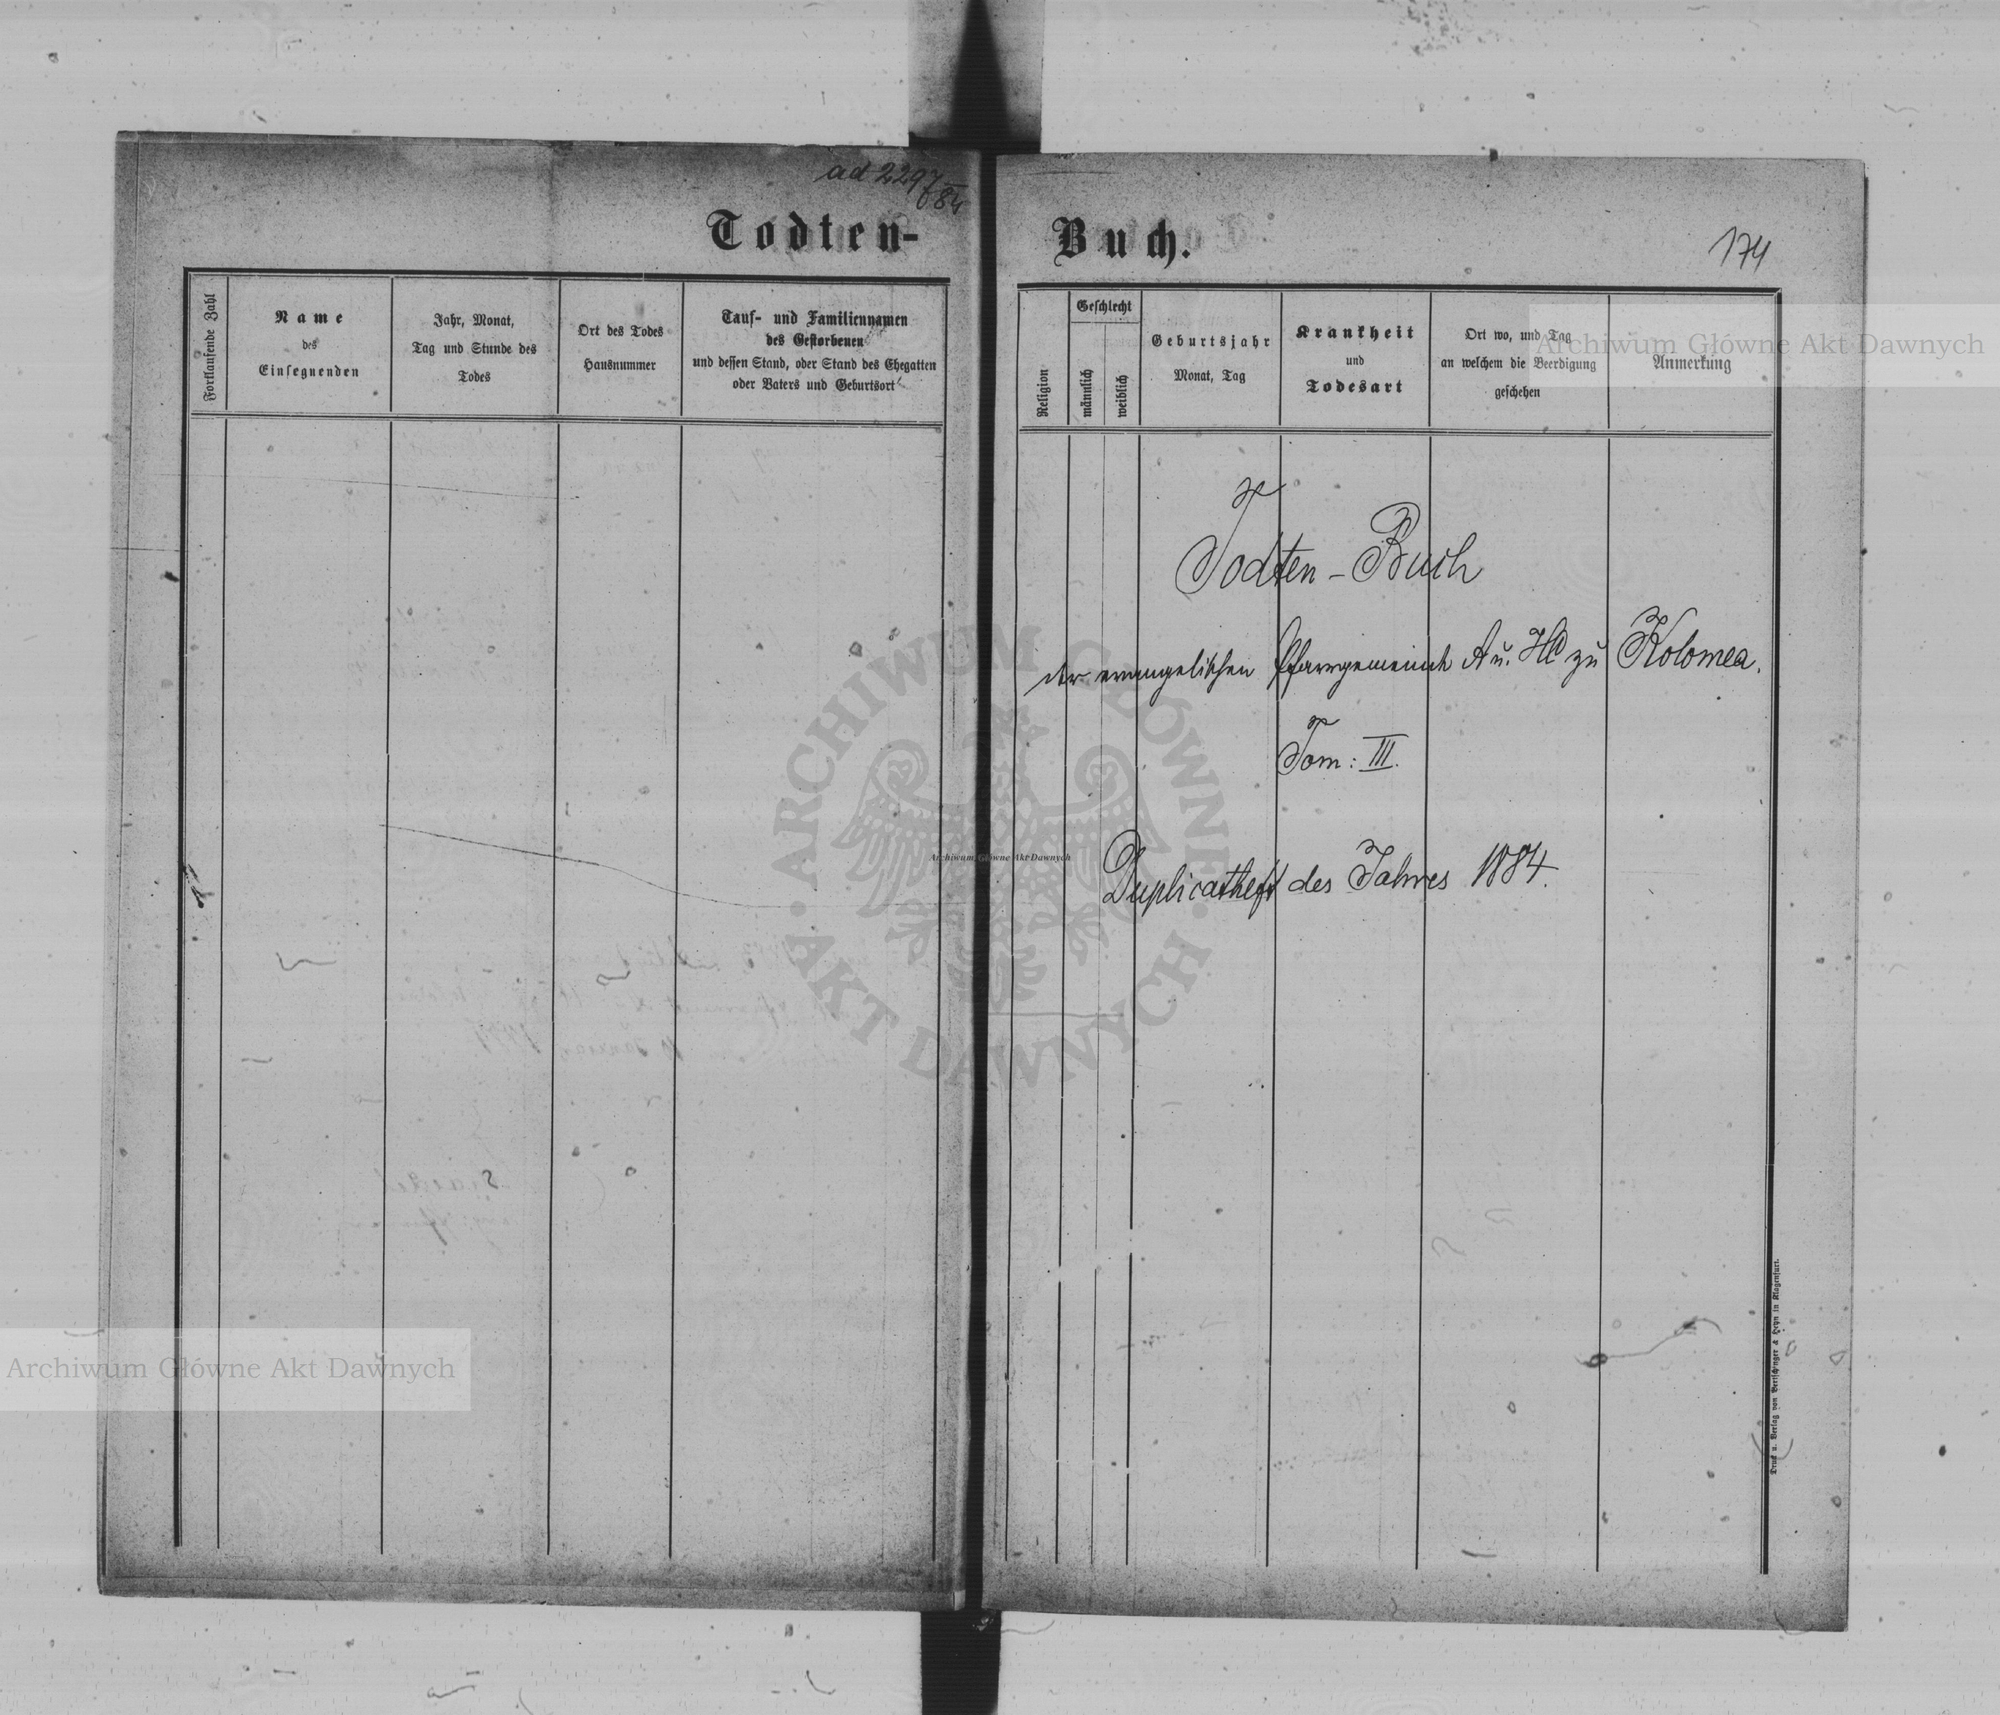 ad 2297/84
Todten-
Buch.
174
Fortlaufende Zahl
Name
des
Einsegnenden
Jahr, Monat,
Tag und Stunde des
Todes
Ort des Todes
Hausnummer
Tauf- und Familiennamen
des Gestorbenen
und dessen Stand, oder Stand des Ehegatten
oder Vaters und Geburtsort
Religion
Geschlecht
männlich
weiblich
Geburtsjahr
Monat, Tag
Krankheit
und
Todesart
Ort wo, und Tag
an welchem die Beerdigung
geschehen
Anmerkung
Todten-Buch
der evangelischen Pfarrgemeinde A u. HC zu Kolomea.
Tom: III.
Duplicatheft des Jahres 1884.
Druck u. Verlag von Bertschinger & Heyn in Klagenfurt.
Archiwum Główne Akt Dawnych
Archiwum Główne Akt Dawnych
Archiwum Główne Akt Dawnych
ARCHIWUM GŁÓWNE
AKT DAWNYCH